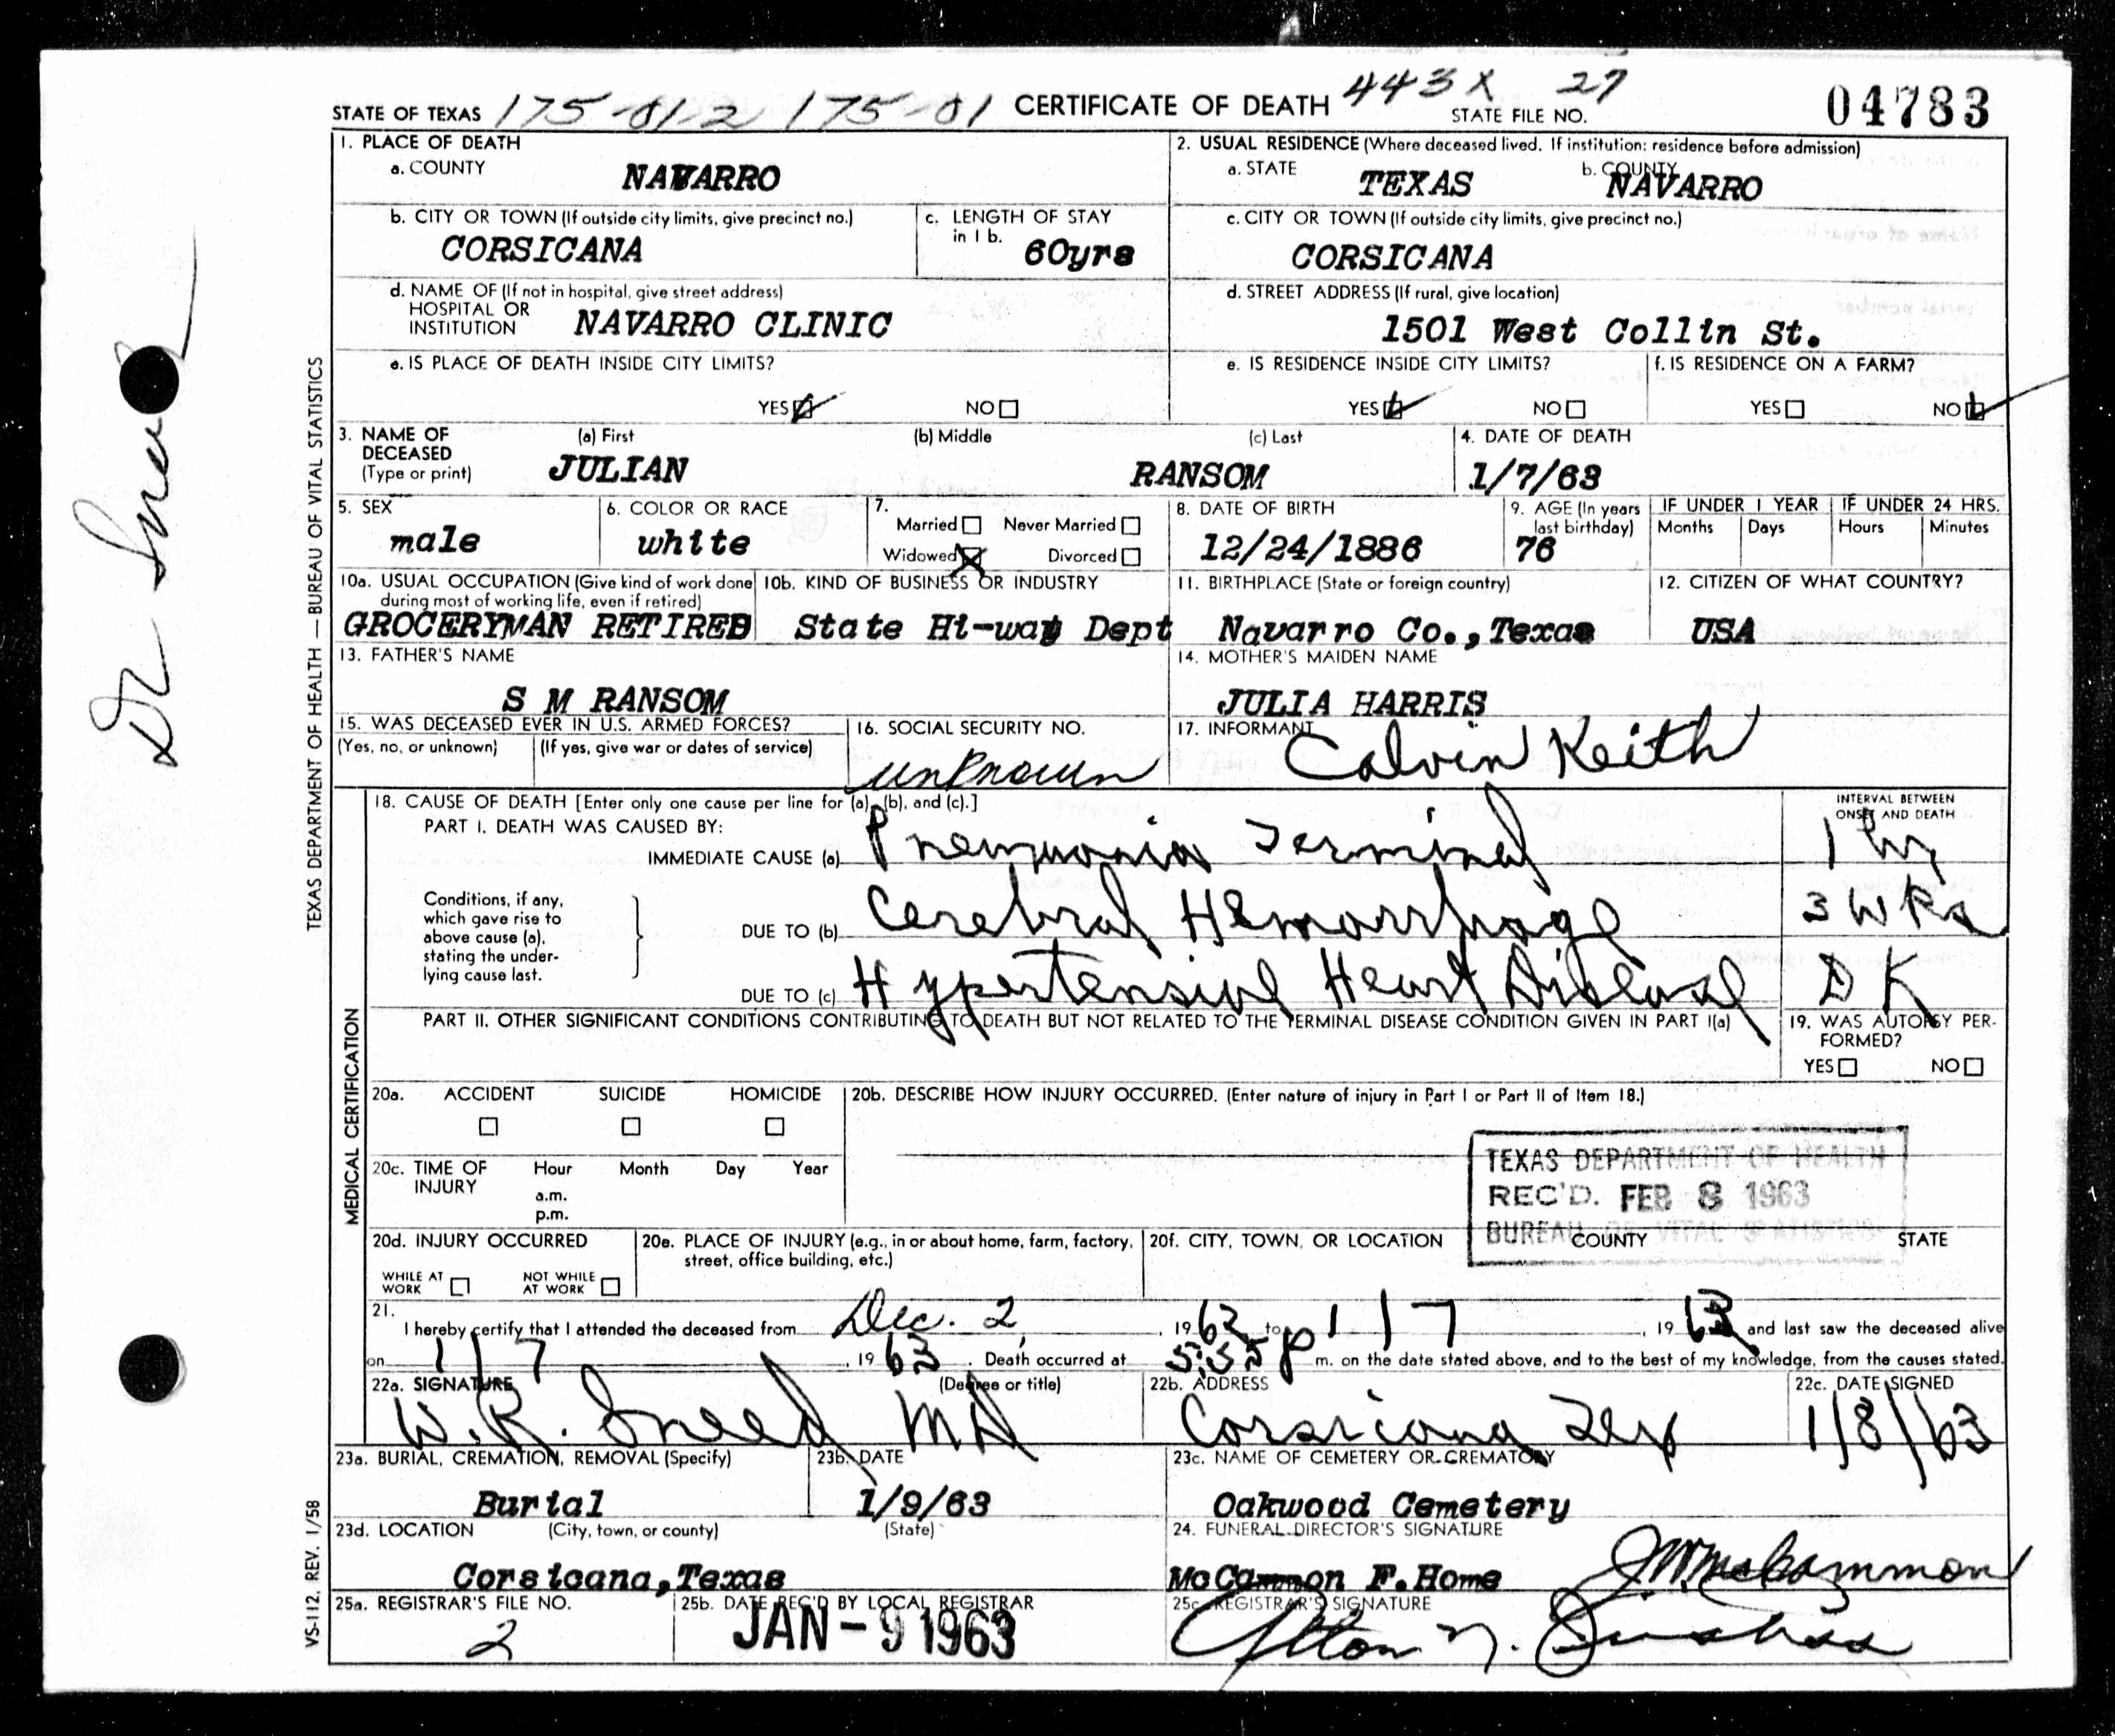 443X 27
STATE OF TEXAS 175-01-2 175-01 CERTIFICATE OF DEATH STATE FILE NO. 04783
1. PLACE OF DEATH
a. COUNTY NAVARRO
2. USUAL RESIDENCE (Where deceased lived. If institution: residence before admission)
a. STATE TEXAS b. COUNTY NAVARRO
b. CITY OR TOWN (If outside city limits, give precinct no.)
CORSICANA
c. LENGTH OF STAY in 1 b. 60yrs
c. CITY OR TOWN (If outside city limits, give precinct no.)
CORSICANA
d. NAME OF (If not in hospital, give street address)
HOSPITAL OR
INSTITUTION NAVARRO CLINIC
d. STREET ADDRESS (If rural, give location)
1501 West Collin St.
e. IS PLACE OF DEATH INSIDE CITY LIMITS?
YES NO
e. IS RESIDENCE INSIDE CITY LIMITS?
YES NO
f. IS RESIDENCE ON A FARM?
YES NO
3. NAME OF DECEASED (Type or print)
(a) First (b) Middle (c) Last
JULIAN RANSOM
4. DATE OF DEATH
1/7/63
5. SEX
male
6. COLOR OR RACE
white
7.
Married Never Married
Widowed Divorced
8. DATE OF BIRTH
12/24/1886
9. AGE (In years last birthday)
76
IF UNDER 1 YEAR IF UNDER 24 HRS.
Months Days Hours Minutes
10a. USUAL OCCUPATION (Give kind of work done
during most of working life, even if retired)
GROCERYMAN RETIRED
10b. KIND OF BUSINESS OR INDUSTRY
State Hi-way Dept
11. BIRTHPLACE (State or foreign country)
Navarro Co., Texas
12. CITIZEN OF WHAT COUNTRY?
USA
13. FATHER'S NAME
S M RANSOM
14. MOTHER'S MAIDEN NAME
JULIA HARRIS
15. WAS DECEASED EVER IN U.S. ARMED FORCES?
(Yes, no, or unknown) (If yes, give war or dates of service)
16. SOCIAL SECURITY NO.
unknown
17. INFORMANT
Calvin Keith
18. CAUSE OF DEATH [Enter only one cause per line for (a), (b), and (c).]
INTERVAL BETWEEN
ONSET AND DEATH
PART I. DEATH WAS CAUSED BY:
IMMEDIATE CAUSE (a) Pneumonia Terminal
Conditions, if any,
which gave rise to
above cause (a),
stating the under-
lying cause last.
DUE TO (b) Cerebral Hemorrhage 3 Wks
DUE TO (c) Hypertensive Heart Disease D K
PART II. OTHER SIGNIFICANT CONDITIONS CONTRIBUTING TO DEATH BUT NOT RELATED TO THE TERMINAL DISEASE CONDITION GIVEN IN PART I(a)
19. WAS AUTOPSY PER-
FORMED?
YES NO
20a. ACCIDENT SUICIDE HOMICIDE
20b. DESCRIBE HOW INJURY OCCURRED. (Enter nature of injury in Part I or Part II of Item 18.)
20c. TIME OF INJURY Hour Month Day Year
a.m.
p.m.
TEXAS DEPARTMENT OF HEALTH
REC'D. FEB 8 1963
BUREAU OF VITAL STATISTICS
20d. INJURY OCCURRED
WHILE AT WORK NOT WHILE AT WORK
20e. PLACE OF INJURY (e.g., in or about home, farm, factory,
street, office building, etc.)
20f. CITY, TOWN, OR LOCATION COUNTY STATE
21.
I hereby certify that I attended the deceased from Dec. 2, 1962 to 1/7, 1963 and last saw the deceased alive
on 1/7, 1963. Death occurred at 5:35 p m. on the date stated above, and to the best of my knowledge, from the causes stated.
22a. SIGNATURE (Degree or title)
W.R. Sneed MD
22b. ADDRESS
Corsicana Tex
22c. DATE SIGNED
1/8/63
23a. BURIAL, CREMATION, REMOVAL (Specify)
Burial
23b. DATE
1/9/63
23c. NAME OF CEMETERY OR CREMATORY
Oakwood Cemetery
23d. LOCATION (City, town, or county) (State)
Corsicana, Texas
24. FUNERAL DIRECTOR'S SIGNATURE
McCammon F. Home
25a. REGISTRAR'S FILE NO.
2
25b. DATE REC'D BY LOCAL REGISTRAR
JAN - 9 1963
25c. REGISTRAR'S SIGNATURE
TEXAS DEPARTMENT OF HEALTH — BUREAU OF VITAL STATISTICS
MEDICAL CERTIFICATION
VS-112, REV. 1/58
Dr Sneed